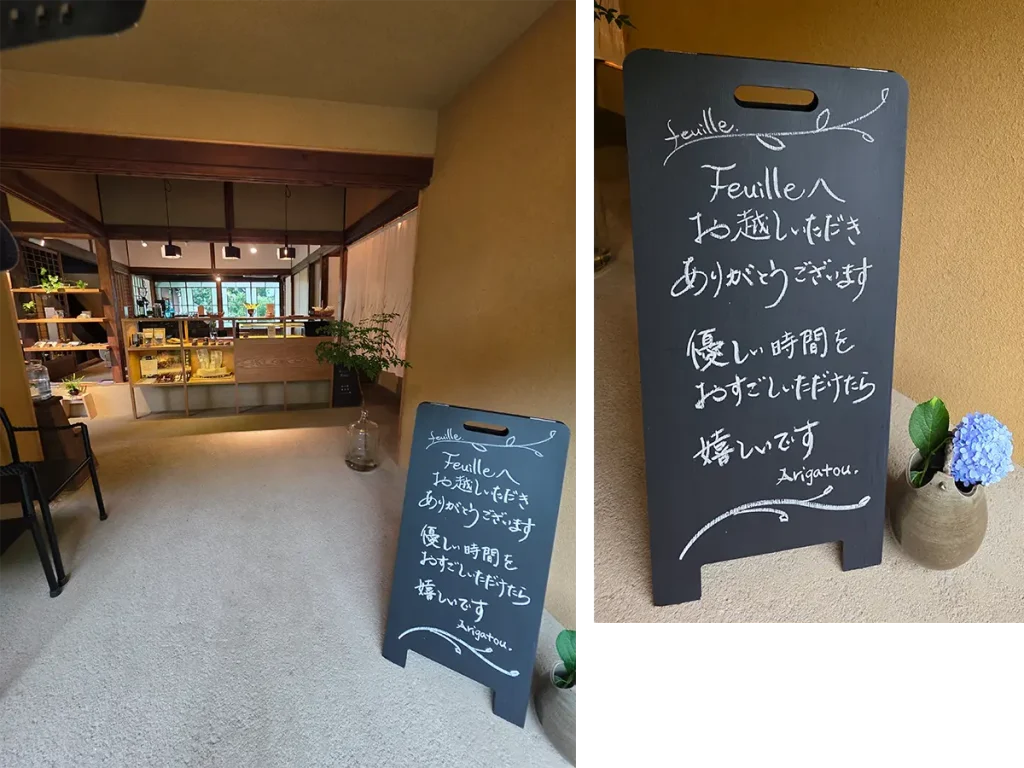 feuille
Feuilleへ
お越しいただき
ありがとうございます
優しい時間を
おすごしいただけたら
嬉しいです
Arigatou.
feuille.
Feuilleへ
お越しいただき
ありがとうございます
優しい時間を
おすごしいただけたら
嬉しいです
Arigatou.